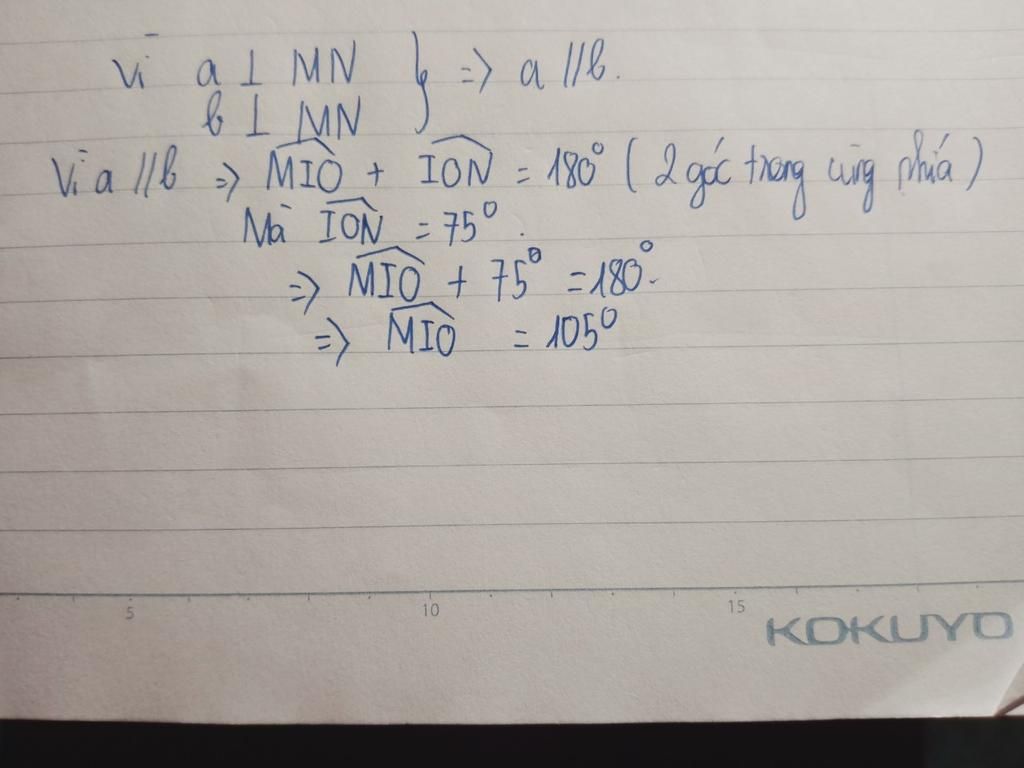 Vì a ⊥ MN } => a // b.
b ⊥ MN
Vì a // b => MIO + ION = 180° ( 2 góc trong cùng phía )
Mà ION = 75° .
=> MIO + 75° = 180°.
=> MIO = 105°
5 10 15
KOKUYO